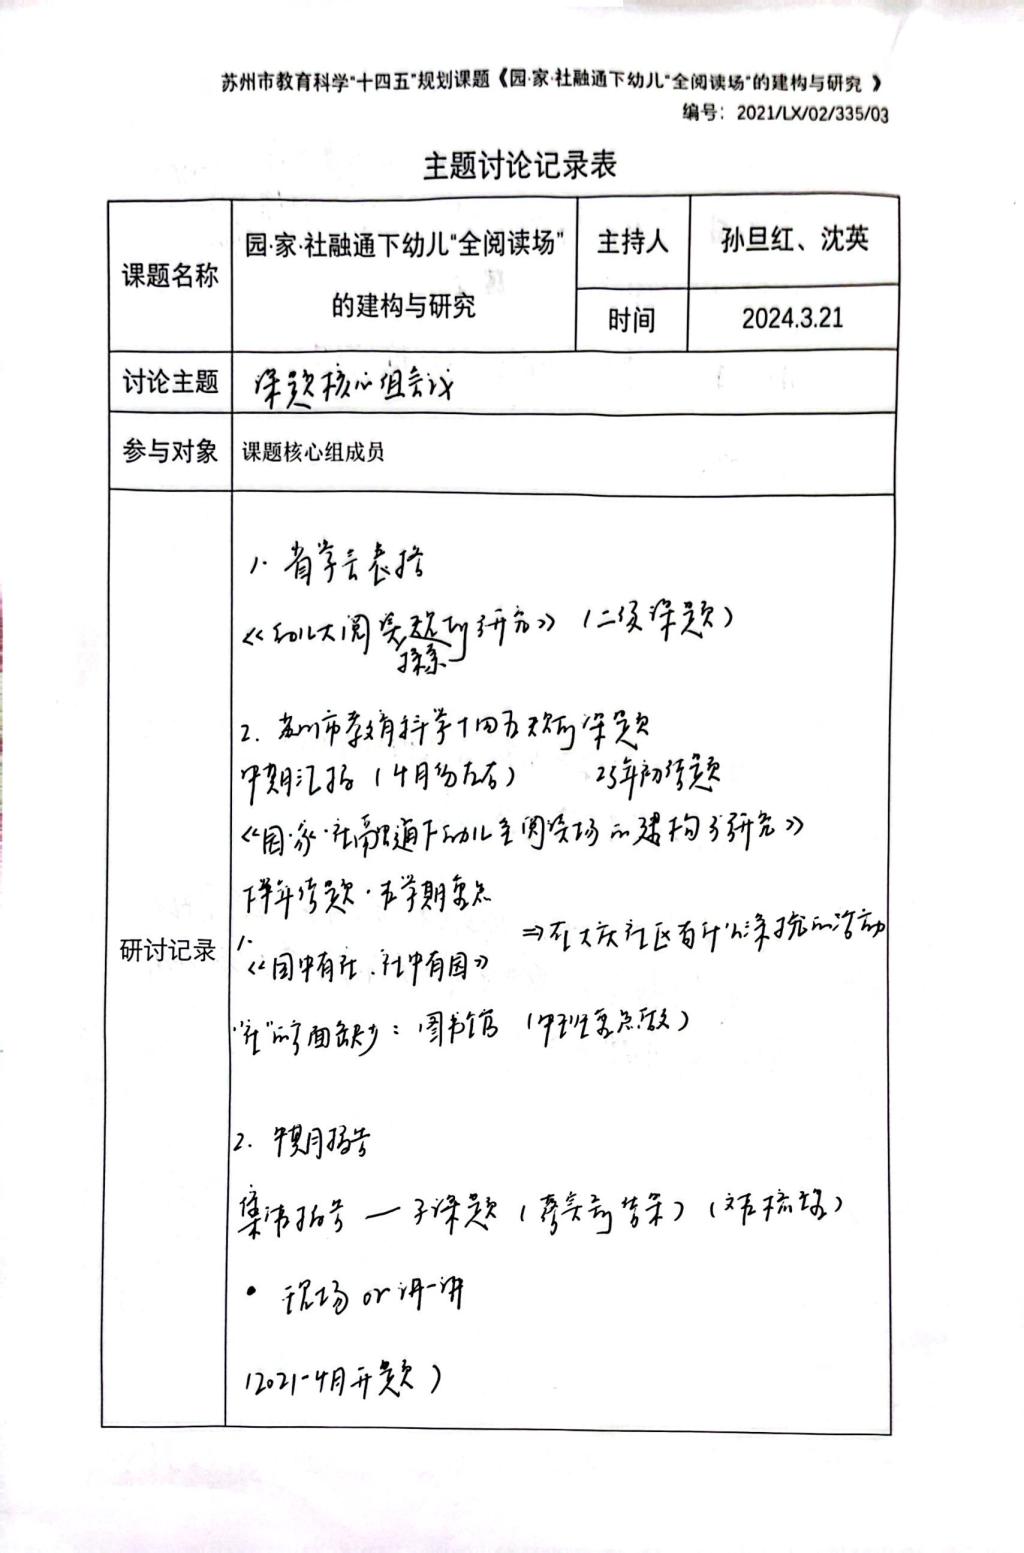 苏州市教育科学“十四五”规划课题《园·家·社融通下幼儿“全阅读场”的建构与研究 》
编号：2021/LX/02/335/03
主题讨论记录表
课题名称
园·家·社融通下幼儿“全阅读场”
的建构与研究
主持人
孙旦红、沈英
时间
2024.3.21
讨论主题
课题核心组会议
参与对象
课题核心组成员
研讨记录
1. 省学会表格
《幼儿大阅读 研究》（二级课题）
探索
2. 苏州市教育科学十四五规划课题
中期汇报（4月份左右） 25年初结题
《园·家·社融通下幼儿全阅读场的建构与研究》
下半年结题·本学期重点
1.
《园中有社、社中有园》
⇒在大庆社区有什么 的活动
“社”的方面缺少：图书馆（中班重点放）
2. 中期报告
集 报告 — 子课题（ ）（ ）
• 现场 or 讲一讲
（2021-4月开题）